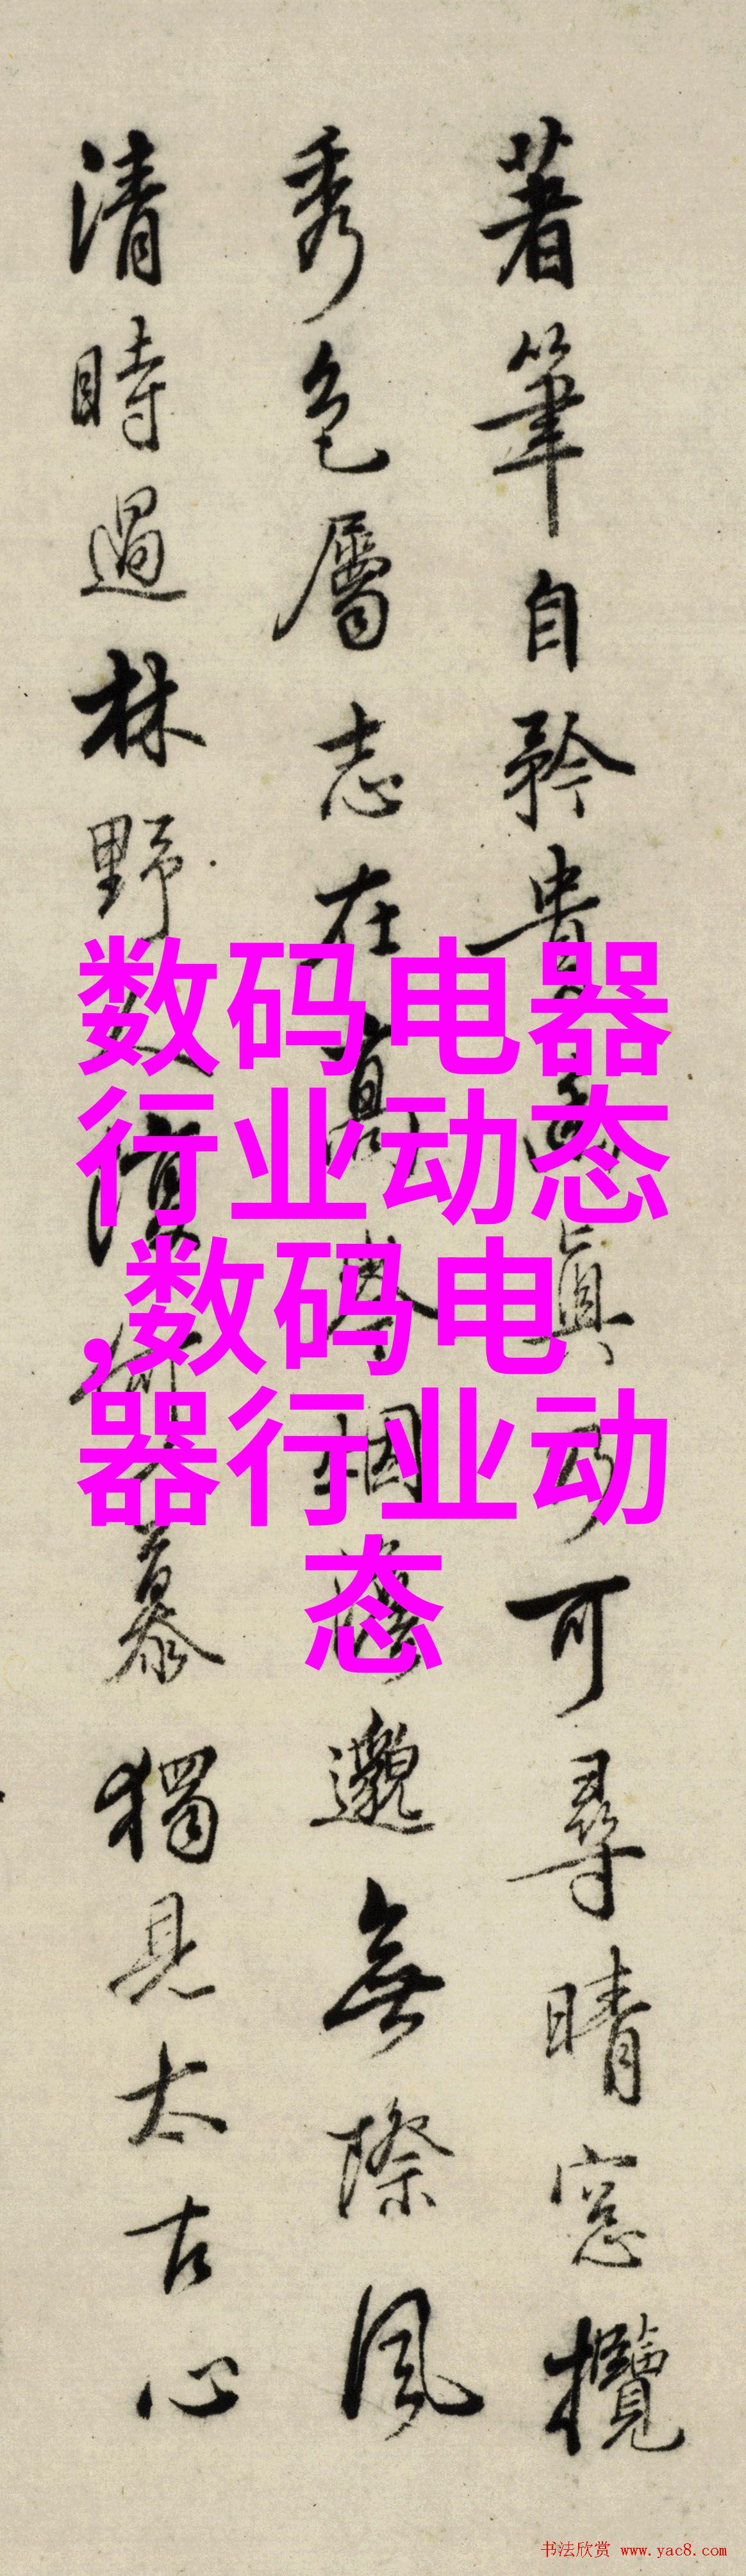 著筆自矜貴 真 可尋晴窓攬
秀色屬志在高 烟 邈無際風
清時過林野 慕獨見太古心
数码电器
行业动态
,数码电
器行业动
态
书法欣赏 www.yac8.com